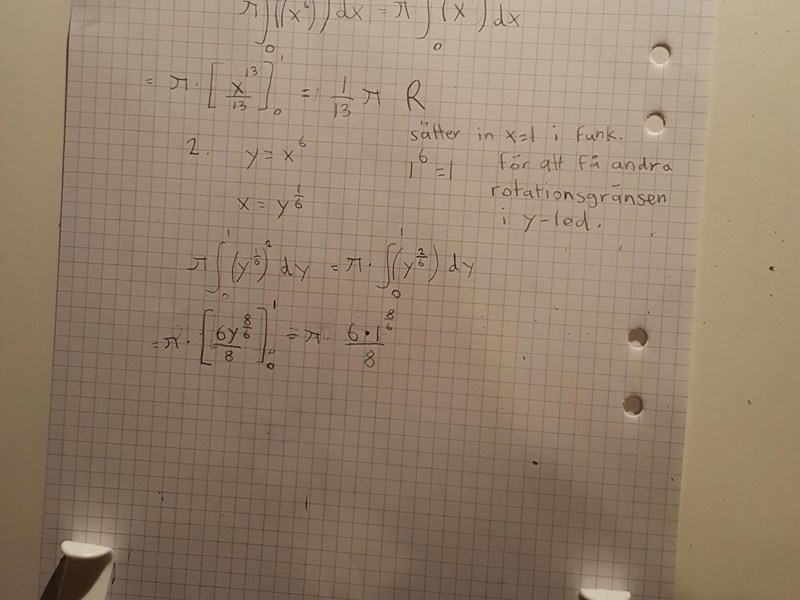 π ∫₀ ((x⁶)) dx = π ∫₀ (x ) dx
= π · [x¹³/13]₀¹ = 1/13 π R
sätter in x=1 i funk.
1⁶=1 för att få andra
rotationsgränsen
i y-led.
2. y = x⁶
x = y^(1/6)
π ∫₀¹ (y^(1/6))² dy = π · ∫₀¹ (y^(2/6)) dy
= π · [6y^(8/6)/8]₀¹ = π · 6·1^(8/6)/8